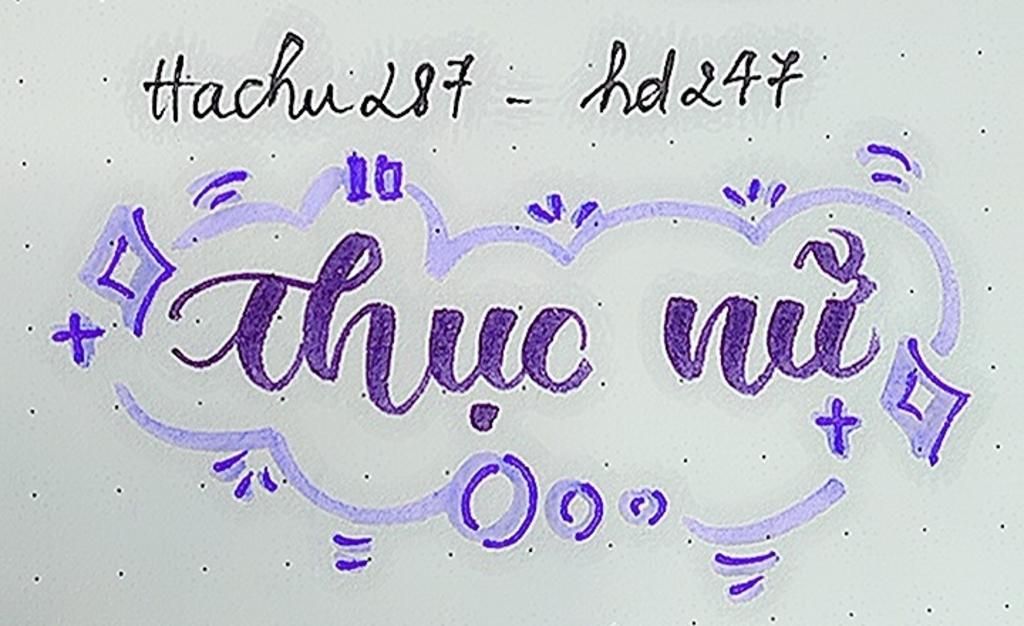 Hachu287 - hd247
16
Thục nữ